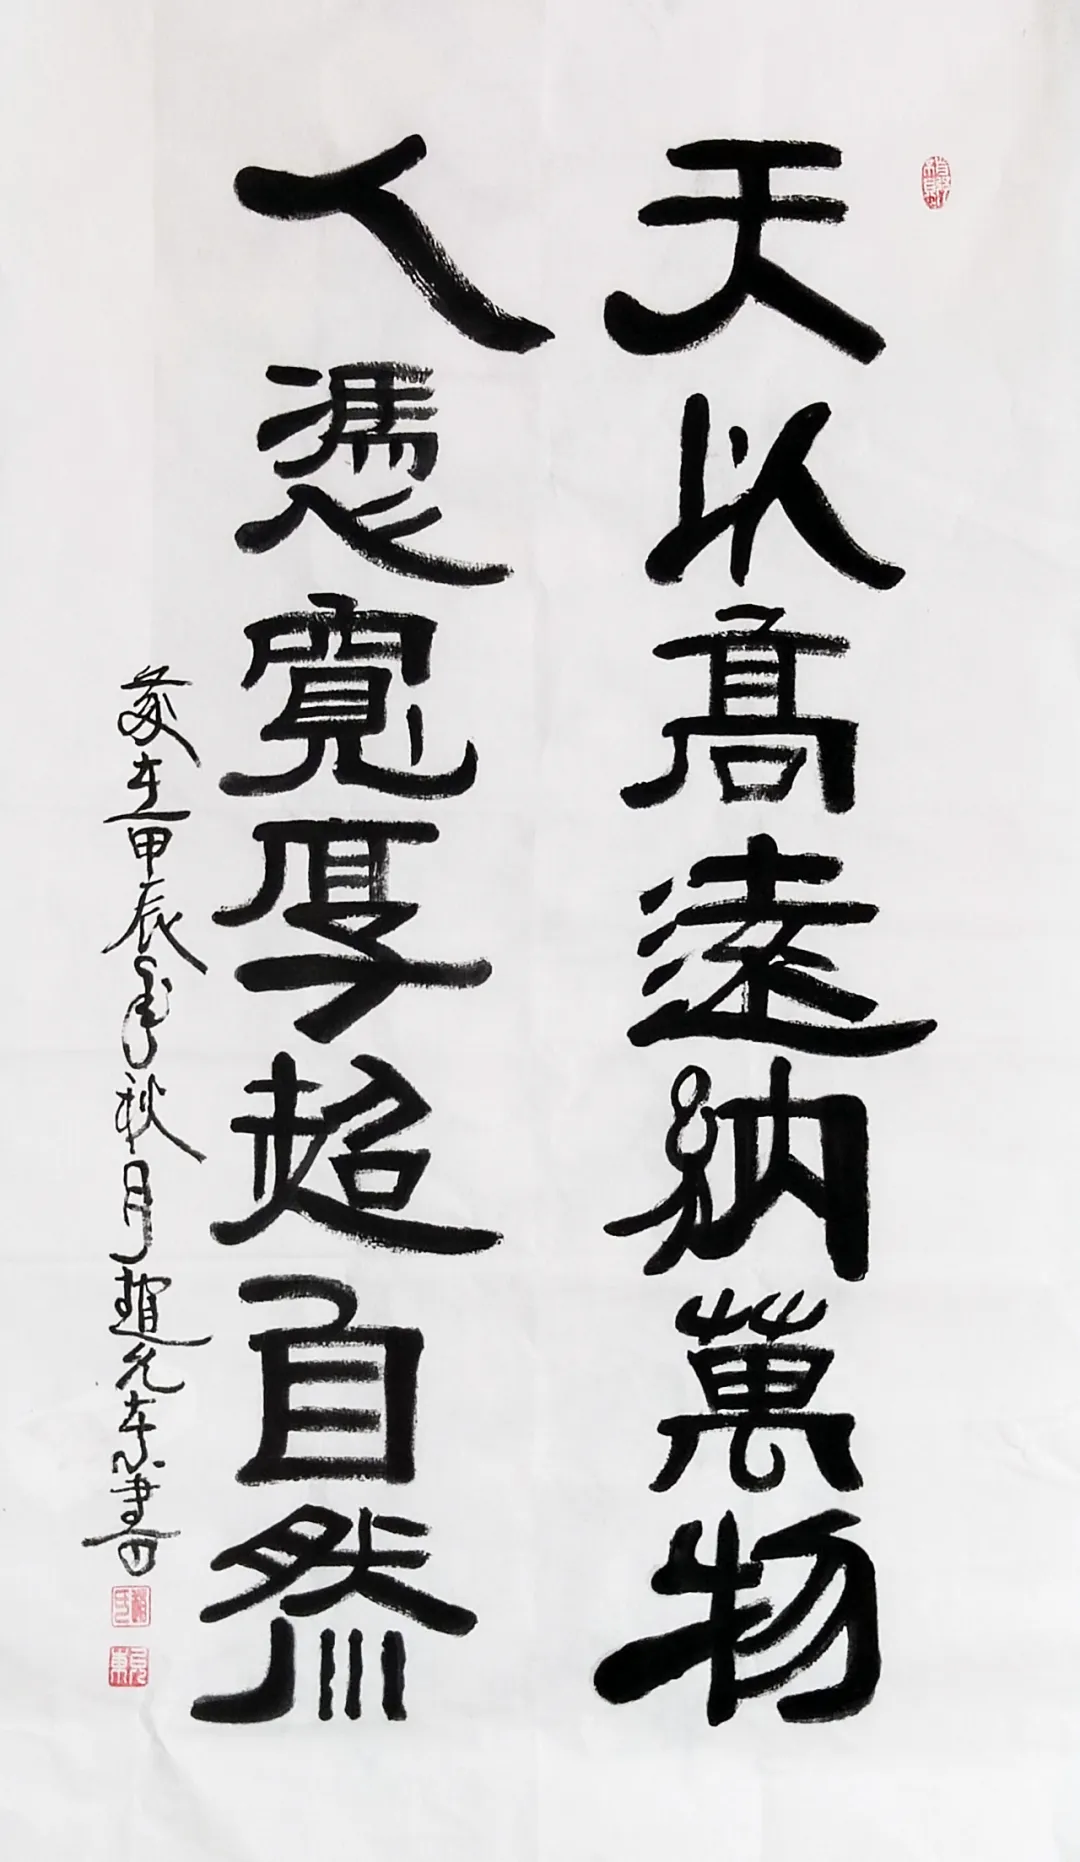 天以高遠納萬物
人憑寬厚超自然
歲在甲辰年秋月趙允東書